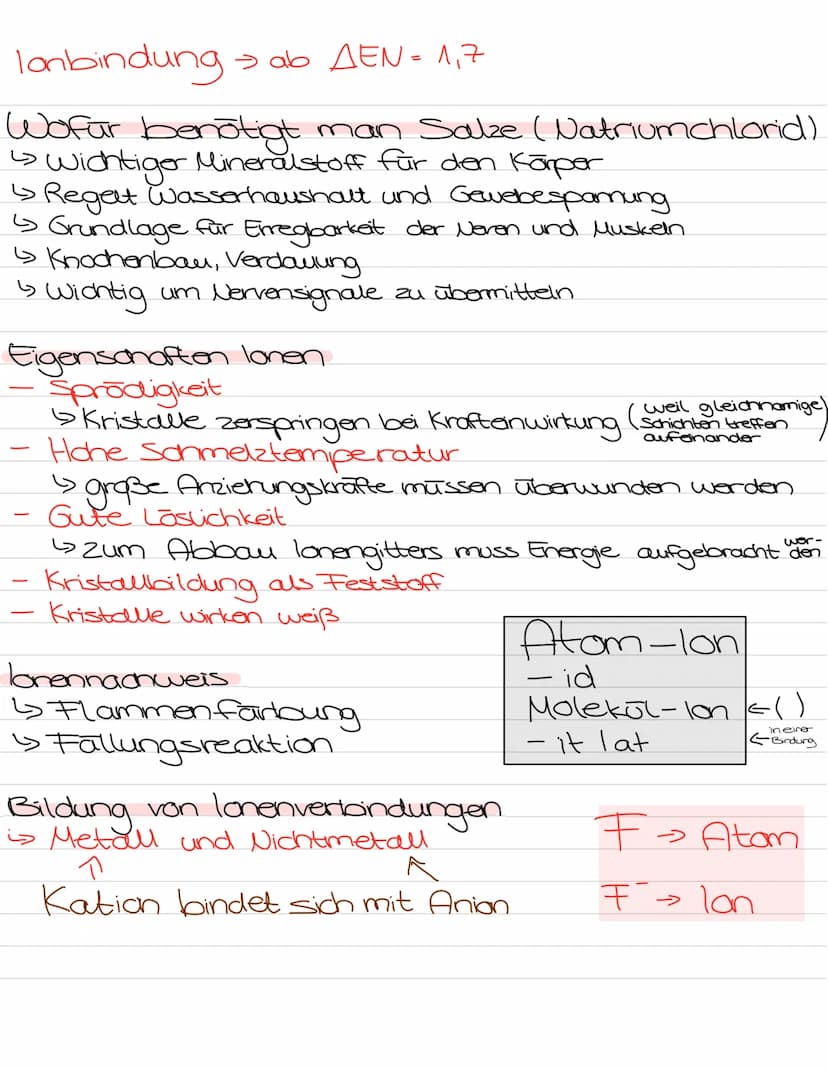 Ionbindung → ab ΔEN = 1,7
Wofür benötigt man Salze (Natriumchlorid)
↳ Wichtiger Mineralstoff für den Körper
↳ Regelt Wasserhaushalt und Gewebespannung
↳ Grundlage für Erregbarkeit der Nerven und Muskeln
↳ Knochenbau, Verdauung
↳ Wichtig um Nervensignale zu übermitteln
Eigenschaften Ionen
- Sprödigkeit
↳ Kristalle zerspringen bei Krafteinwirkung (weil gleichnamige
Schichten treffen
aufeinander)
- Hohe Schmelztemperatur
↳ große Anziehungskräfte müssen überwunden werden
- Gute Löslichkeit
↳ Zum Abbau Ionengitters muss Energie aufgebracht wer-
den
- Kristallbildung als Feststoff
- Kristalle wirken weiß
Ionennachweis
↳ Flammenfärbung
↳ Fällungsreaktion
Atom-Ion
- id
Molekül-Ion ← ( )
- it / at ← in einer
Bindung
Bildung von Ionenverbindungen
↳ Metall und Nichtmetall
Kation bindet sich mit Anion
F → Atom
F⁻ → Ion